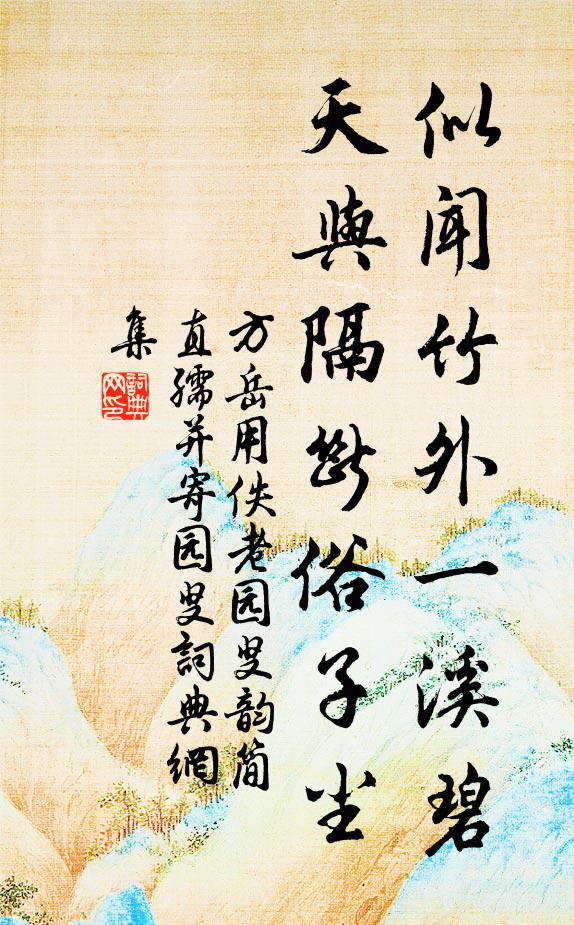 似闻竹外一溪碧
天与隔断俗子尘
方岳用佚老园叟韵简
直孺并寄园叟詞典網
集
詞典
网印